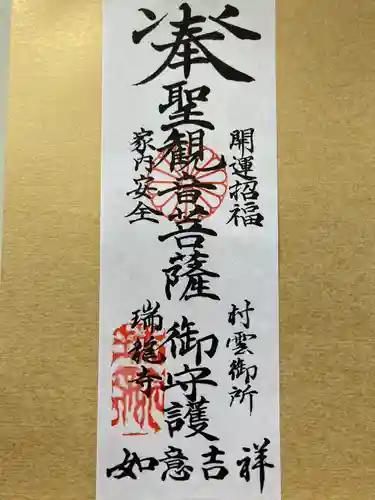 奉
聖観音菩薩御守護
開運招福
家内安全
村雲御所
瑞龍寺
如意吉祥